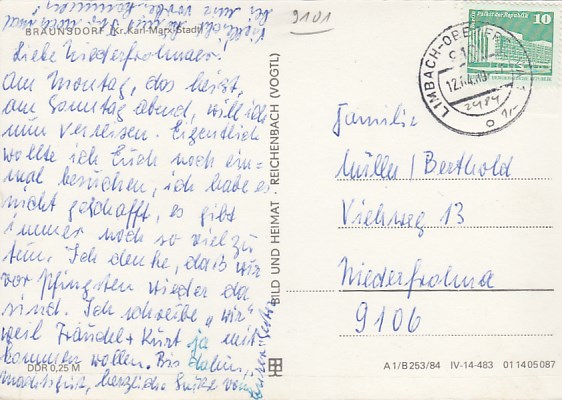 BRAUNSDORF (Kr. Karl-Marx-Stadt)
Liebe Niederfrohnaer.
Am Montag, das heißt,
am Sonntag abend, will ich
nun verreisen. Eigentlich
wollte ich Euch noch ein-
mal besuchen, ich habe es
nicht geschafft, es gibt
immer noch so viel zu
tun. Ich denke, daß wir
vor Pfingsten wieder da
sind. Ich schreibe „wir"
weil Traudel + Kurt ja mit
kommen wollen. Bis dahin,
machts gut, herzliche Grüße von
DDR 0,25 M
BILD UND HEIMAT · REICHENBACH (VOGTL)
9101
LIMBACH-OBERFROHNA 1
10
Familie
Müller/Berthold
Viehweg 13
Niederfrohna
9106
A 1/B 253/84 IV-14-483 01 14 05 087